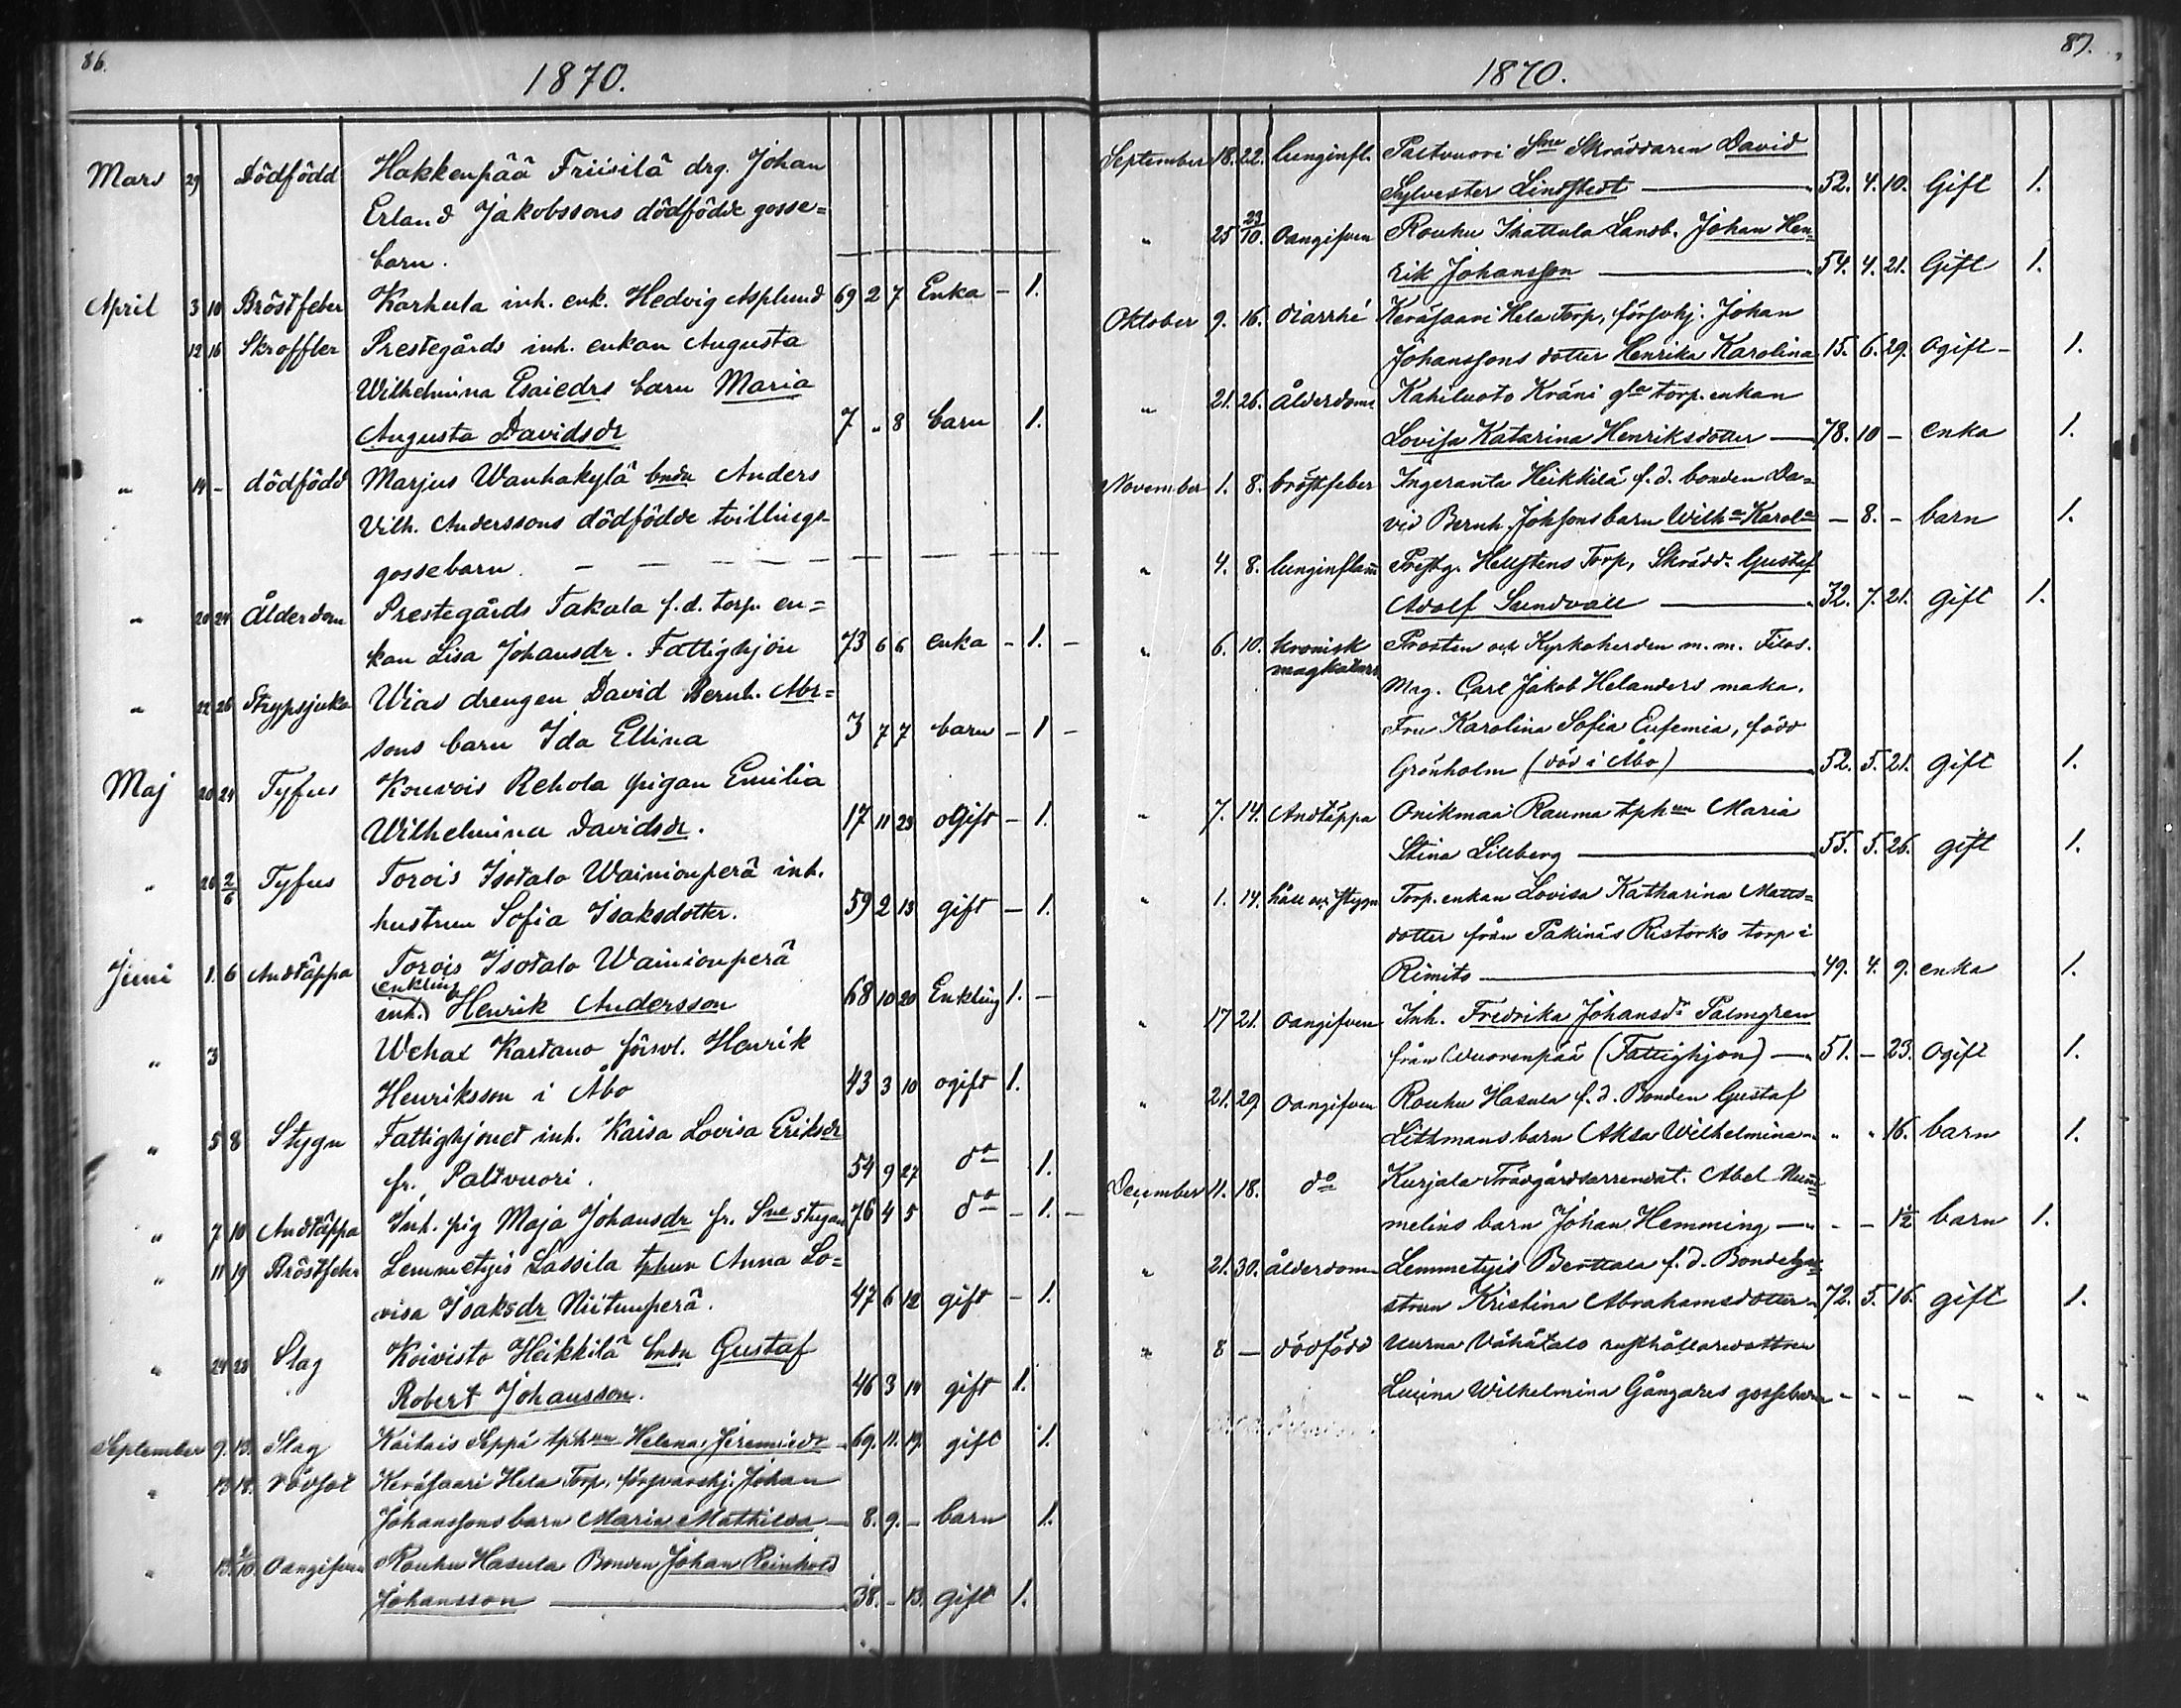 86.
1870.
Mars 29 Dödfödd Hakkenpää Friisilä drg. Johan
Erland Jakobssons dödfödde gosse=
barn.
April 3 10 Bröstfeber Karhula inh. enk. Hedvig Asplund 69 2 7 Enka – 1.
12 16 Skroffler Prestegårds inh. enkan Augusta
Wilhelmina Esaiedrs barn Maria
Augusta Davidsdr 7 „ 8 barn 1.
„ 14 – dödfödd Marjus Wanhakylä bndn Anders
Vilh. Anderssons dödfödde tvillings-
gossebarn. – – – – –
„ 20 24 Ålderdom Prestegårds Takala f.d. torp. en=
kan Lisa Johansdr. Fattighjon 73 6 6 enka – 1. –
„ 22 26 Strypsjuka Wias drengen David Bernh. Abr=
sons barn Ida Ellina 3 7 7 barn – 1 –
Maj 20 24 Tyfus Kouvois Rehola pigan Emilia
Wilhelmina Davidsdr. 17 11 23 oGift – 1.
„ 26 2/6 Tyfus Torois Isotalo Wainionperä inh.
hustrun Sofia Isaksdotter. 59 2 13 gift – 1.
Juni 1. 6 Andtäppa Torois Isotalo Wainionperä
enkling
inh. Henrik Andersson 68 10 20 Enkling 1. –
„ 3 Wehax Kartano försvl. Henrik
Henriksson i Åbo 43 3 10 ogift 1.
„ 5 8 Stygn Fattighjonet inh. Kaisa Lovisa Eriksdr
fr. Paltvuori. 54 9 27 do 1.
„ 7 10 Andtäppa Inh. pig Maja Johansdr fr. Sne stugan 76 4 5 do – 1. –
„ 11 19 Bröstfebr Lemmetyis Lassila tphun Anna Lo=
visa Isaksdr Niitunperä. 47 6 12 gift – 1.
„ 24 28 Slag Koivisto Heikkilä bndn Gustaf
Robert Johansson. 46 3 14 gift 1.
September 9. 13. Slag Kaitais Seppä tphun Helena Jeremiedr 69. 11. 19. gift 1.
„ 13 18. rödsot Keräsaari Hela Torp. försvarshj. Johan
Johanssons barn Maria Mathilda – 8. 9. – barn 1.
„ 13. 2/10. Oangifven Rouhu Hasula Bonden Johan Reinhold
Johansson 38. – 13. gift 1.
87.
1870.
September 18. 22. lunginfl. Paltvuori Sne Skräddaren David
Sylvester Lindstedt 52. 4. 10. Gift 1.
„ 25 23/10. Oangifven Rouhu Ikattula Landb. Johan Hen=
rik Johansson 54. 4. 21. Gift 1.
Oktober 9. 16. diarrhé Keräsaari Hela Torp, försvhj. Johan
Johanssons dotter Henrika Karolina 15. 6. 29. Ogift – 1.
„ 21. 26. Ålderdom Kahiluoto Kräni gla torp. enkan
Lovisa Katarina Henriksdotter — 78. 10 – enka 1.
November 1. 8. bröstfeber Ingeranta Heikkilä f.d. bonden Da=
vid Bernh. Johssons barn Wilha Karola – 8. – barn 1.
„ 4. 8. lunginflam Prestg. Hellstens Torp, Skrädd. Gustaf
Adolf Sundvall 32. 7. 21. gift 1.
„ 6. 10. kronisk Prosten och Kyrkoherden m. m. Filos.
magkatarr Mag. Carl Jakob Helanders maka.
Fru Karolina Sofia Eufemia, född
Grönholm (död i Åbo) 52. 5. 21. gift 1.
„ 7. 14. Andtäppa Onikmaa Rauma tphun Maria
Stina Lillberg 55. 5. 26. gift 1.
„ 1. 14. håll och stygn Torp. enkan Lovisa Katharina Matts=
dotter från Pakinais Ristorks torp i
Rimito 49. 4. 9. enka 1.
„ 17 21. Oangifven Inh. Fredrika Johansdr Palmgren
från Wuorenpää (Fattighjon) — 51. – 23. Ogift 1.
„ 21. 29. Oangifven Rouhu Hasula f.d. Bonden Gustaf
Lithmans barn Aksa Wilhelmina „ „ 16. barn 1.
December 11. 18. do Kurjala Trädgårdsarrendat. Abel Num=
melins barn Johan Hemming – – – 1/2 barn 1.
„ 21. 30. ålderdom Lemmetyis Berttala f.d. Bondehu=
strun Kristina Abrahamsdotter 72. 5. 16. gift 1.
„ 8 – dödfödd Uurna Vähätalo rusthållaredottren
Lucina Wilhelmina Gångares gossebarn – – – – „ „